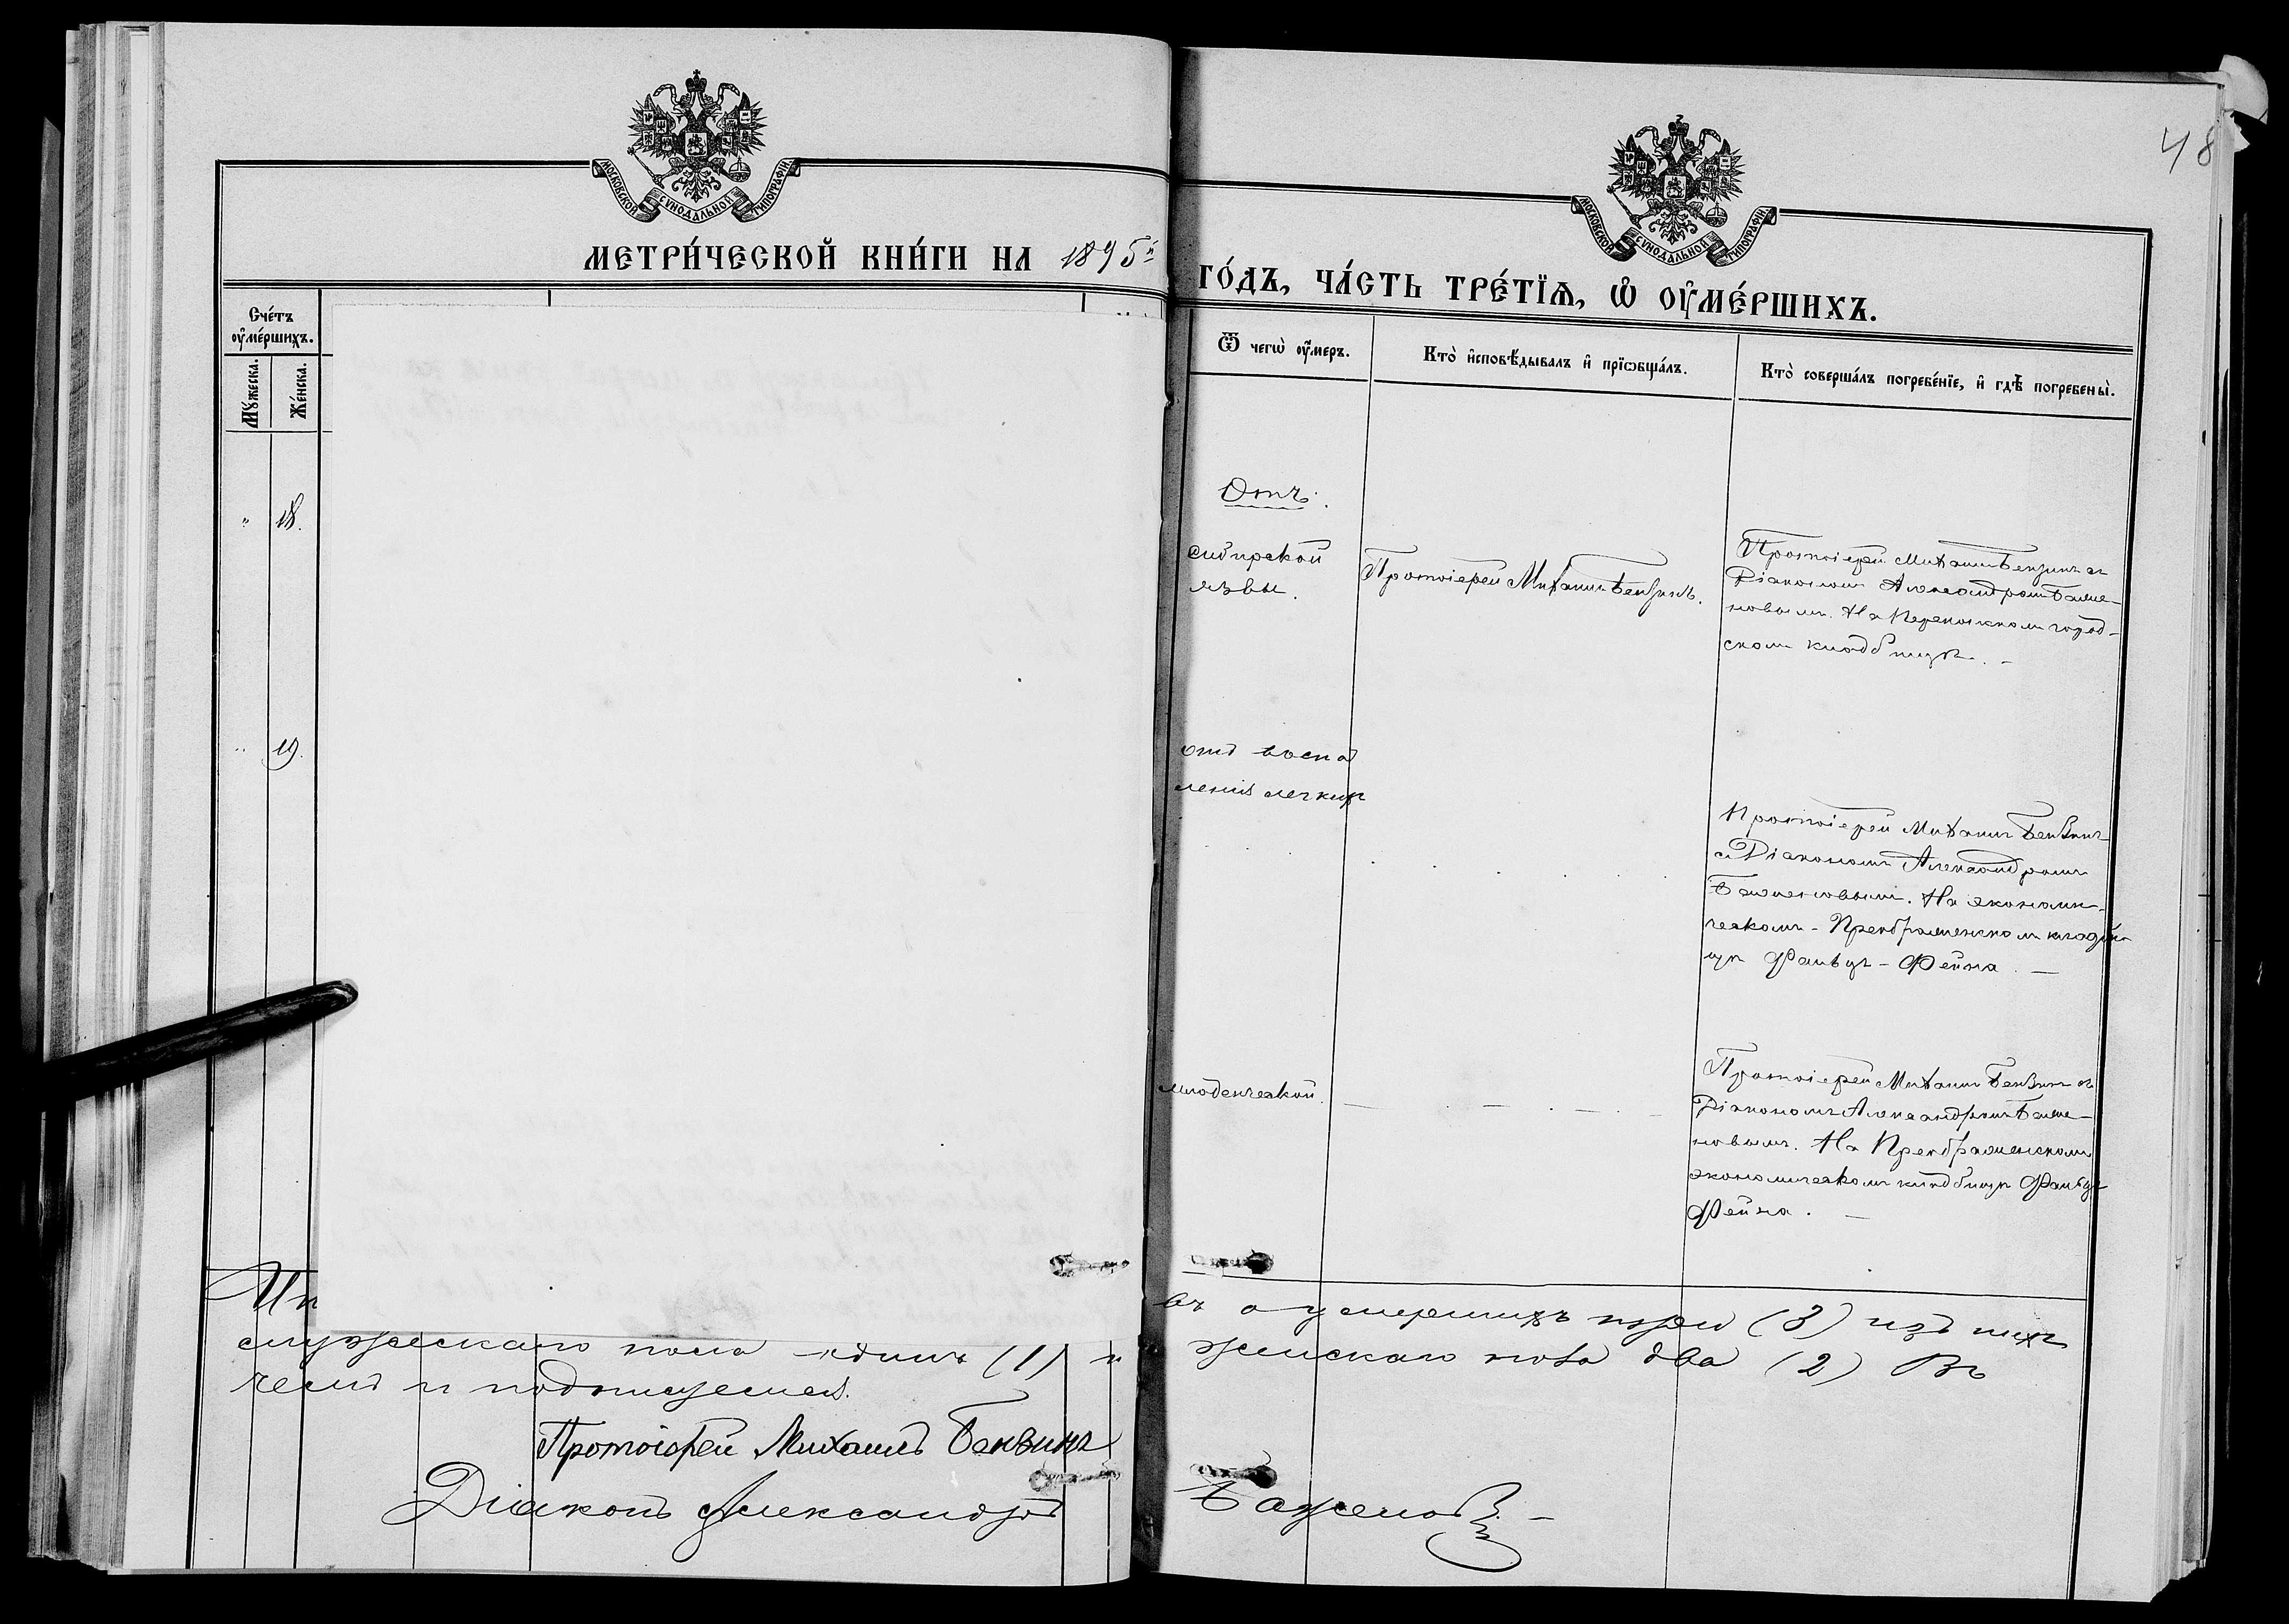 48
МОСКОВСКОЙ СУНОДАЛЬНОЙ ТИПОГРАФІИ.
МОСКОВСКОЙ СУНОДАЛЬНОЙ ТИПОГРАФІИ.
МЕТРИ́ЧЕСКОЙ КНИ́ГИ НА 1895й
ГО́ДЪ, ЧА́СТЬ ТРЕ́ТЇѦ, Ѡ҆ ОУ҆МЕ́РШИХЪ.
Сче́тъ
оу҆ме́ршихъ.
Му́жеска.
Же́нска.
Ѿ чегѡ̀ оу҆́меръ.
Кто̀ и҆сповѣ́дывалъ и҆ прїѡбща́лъ.
Кто̀ соверша́лъ погребе́нїе, и҆ гдѣ̀ погребены̀.
" 18.
Отъ.
сибирской
язвы.
Протоіерей Михаилъ Бенвинъ.
Протоіерей Михаилъ Бенвинъ съ
Діакономъ Александромъ Баже-
новымъ. На Перекопскомъ город-
скомъ кладбищѣ. -
" 19.
отъ воспа
ленія легкихъ
Протоіерей Михаилъ Бенвинъ
съ Діакономъ Александромъ
Баженовымъ. На экономи-
ческомъ - Преображенскомъ кладби-
щѣ Фальцъ - Фейна. —
младенческой.
Протоіерей Михаилъ Бенвинъ съ
Діакономъ Александромъ Баже-
новымъ. На Преображенскомъ
экономическомъ кладбищѣ Фальцъ
Фейна. —
Ит
въ о умершихъ три (3) изъ нихъ
мужескаго пола одинъ (1) и
женскаго пола два (2) Въ
чемъ и подписуемся.
Протоіерей Михаилъ Бенвинъ
Діаконъ Александръ
Баженовъ. -